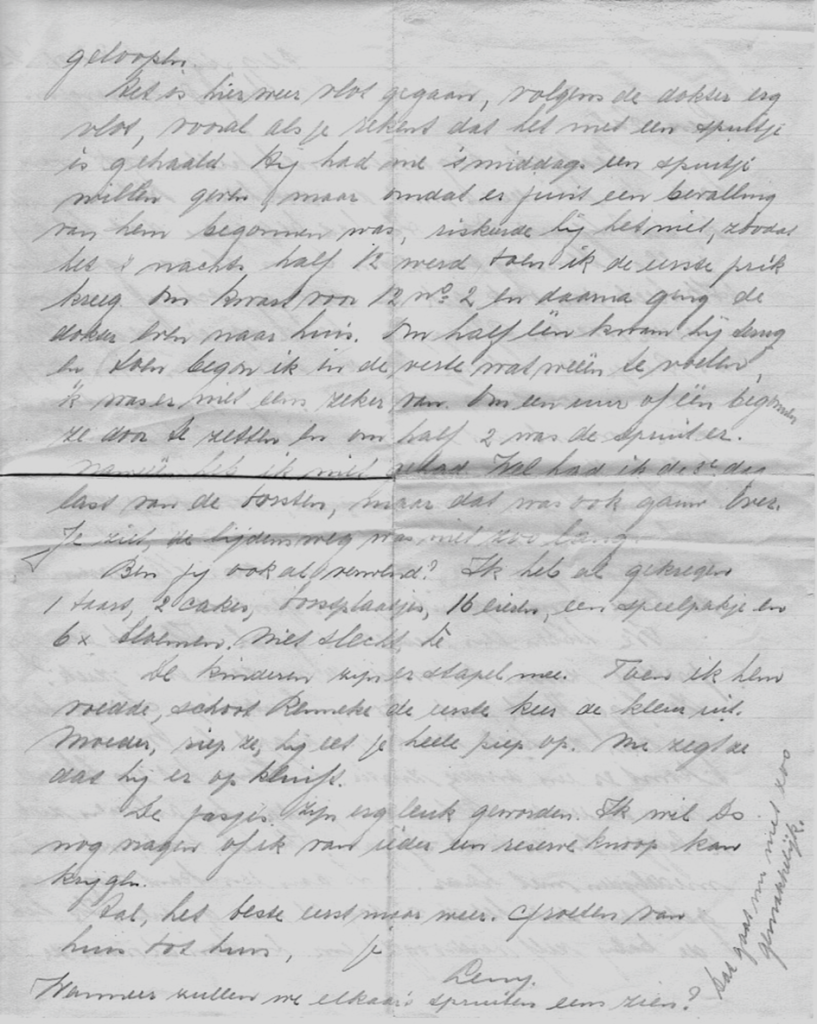 geloopen.
Het is hier weer vlot gegaan, volgens de dokter erg
vlot, vooral als je rekent dat het met een spuitje
is gehaald. Hij had me 's middags een spuitje
willen geven, maar omdat er juist een bevalling
van hem begonnen was, riskeerde hij het niet, zoodat
het 's nachts half 12 werd toen ik de eerste prik
kreeg. Om kwart voor 12 no 2 en daarna ging de
dokter even naar huis. Om half één kwam hij terug
en toen begon ik in de verte wat weeën te voelen,
ik was er niet eens zeker van. Om een uur of één begonnen
ze door te zetten en om half 2 was de spruit er.
Naweeën heb ik niet gehad. Wel had ik de 3e dag
last van de borsten, maar dat was ook gauw over.
Je ziet, de lijdensweg was niet zoo lang.
Ben jij ook al verwend? Ik heb al gekregen
1 taart, 2 cakes, borstplaatjes, 16 eieren, een speelpakje en
6 x bloemen. Niet slecht, hè
De kinderen zijn er stapel mee. Toen ik hem
voedde, schoot Renneke de eerste keer de kleur uit.
Moeder, riep ze, hij eet je heele piep op. Nu zegt ze
dat hij er op kluift.
De jasjes zijn erg leuk geworden. Ik wil
nog vragen of ik van ieder een reserve knoop kan
krijgen.
het beste eerst maar weer. Groeten van
huis tot huis, je
Leny.
Wanneer zullen we elkaars spruiten eens zien?
Dat gaat nu niet zoo
gemakkelijk.